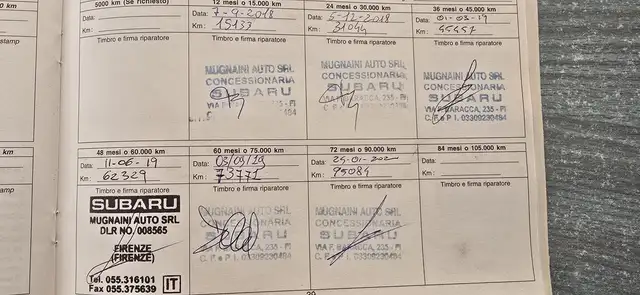 5000 km (Se richiesto)
12 mesi o 15.000 km
24 mesi o 30.000 km
36 mesi o 45.000 km
Data: 7-9-2018
Data: 5-12-2018
Data: 01-03-19
Km: 15133
Km: 31044
Km:
Timbro e firma riparatore
Timbro e firma riparatore
Timbro e firma riparatore
Timbro e firma riparatore
MUGNAINI AUTO SRL
CONCESSIONARIA
SUBARU
MUGNAINI AUTO SRL
CONCESSIONARIA
SUBARU
VIA F. BARACCA, 235 - FI
MUGNAINI AUTO SRL
CONCESSIONARIA
SUBARU
VIA F. BARACCA, 235 - FI
C.F. e P.I. 03309230484
km
48 mesi o 60.000 km
60 mesi o 75.000 km
72 mesi o 90.000 km
84 mesi o 105.000 km
Data: 11-06-19
Data: 03/09/19
Data:
Data:
Km: 62329
Km: 73771
Km: 95084
Km:
Timbro e firma riparatore
Timbro e firma riparatore
Timbro e firma riparatore
Timbro e firma riparatore
SUBARU
MUGNAINI AUTO SRL
DLR NO. 008565
FIRENZE
(FIRENZE)
Tel. 055.316101
Fax 055.375639
IT
MUGNAINI AUTO SRL
CONCESSIONARIA
SUBARU
MUGNAINI AUTO SRL
CONCESSIONARIA
SUBARU
VIA F. BARACCA, 235 - FI